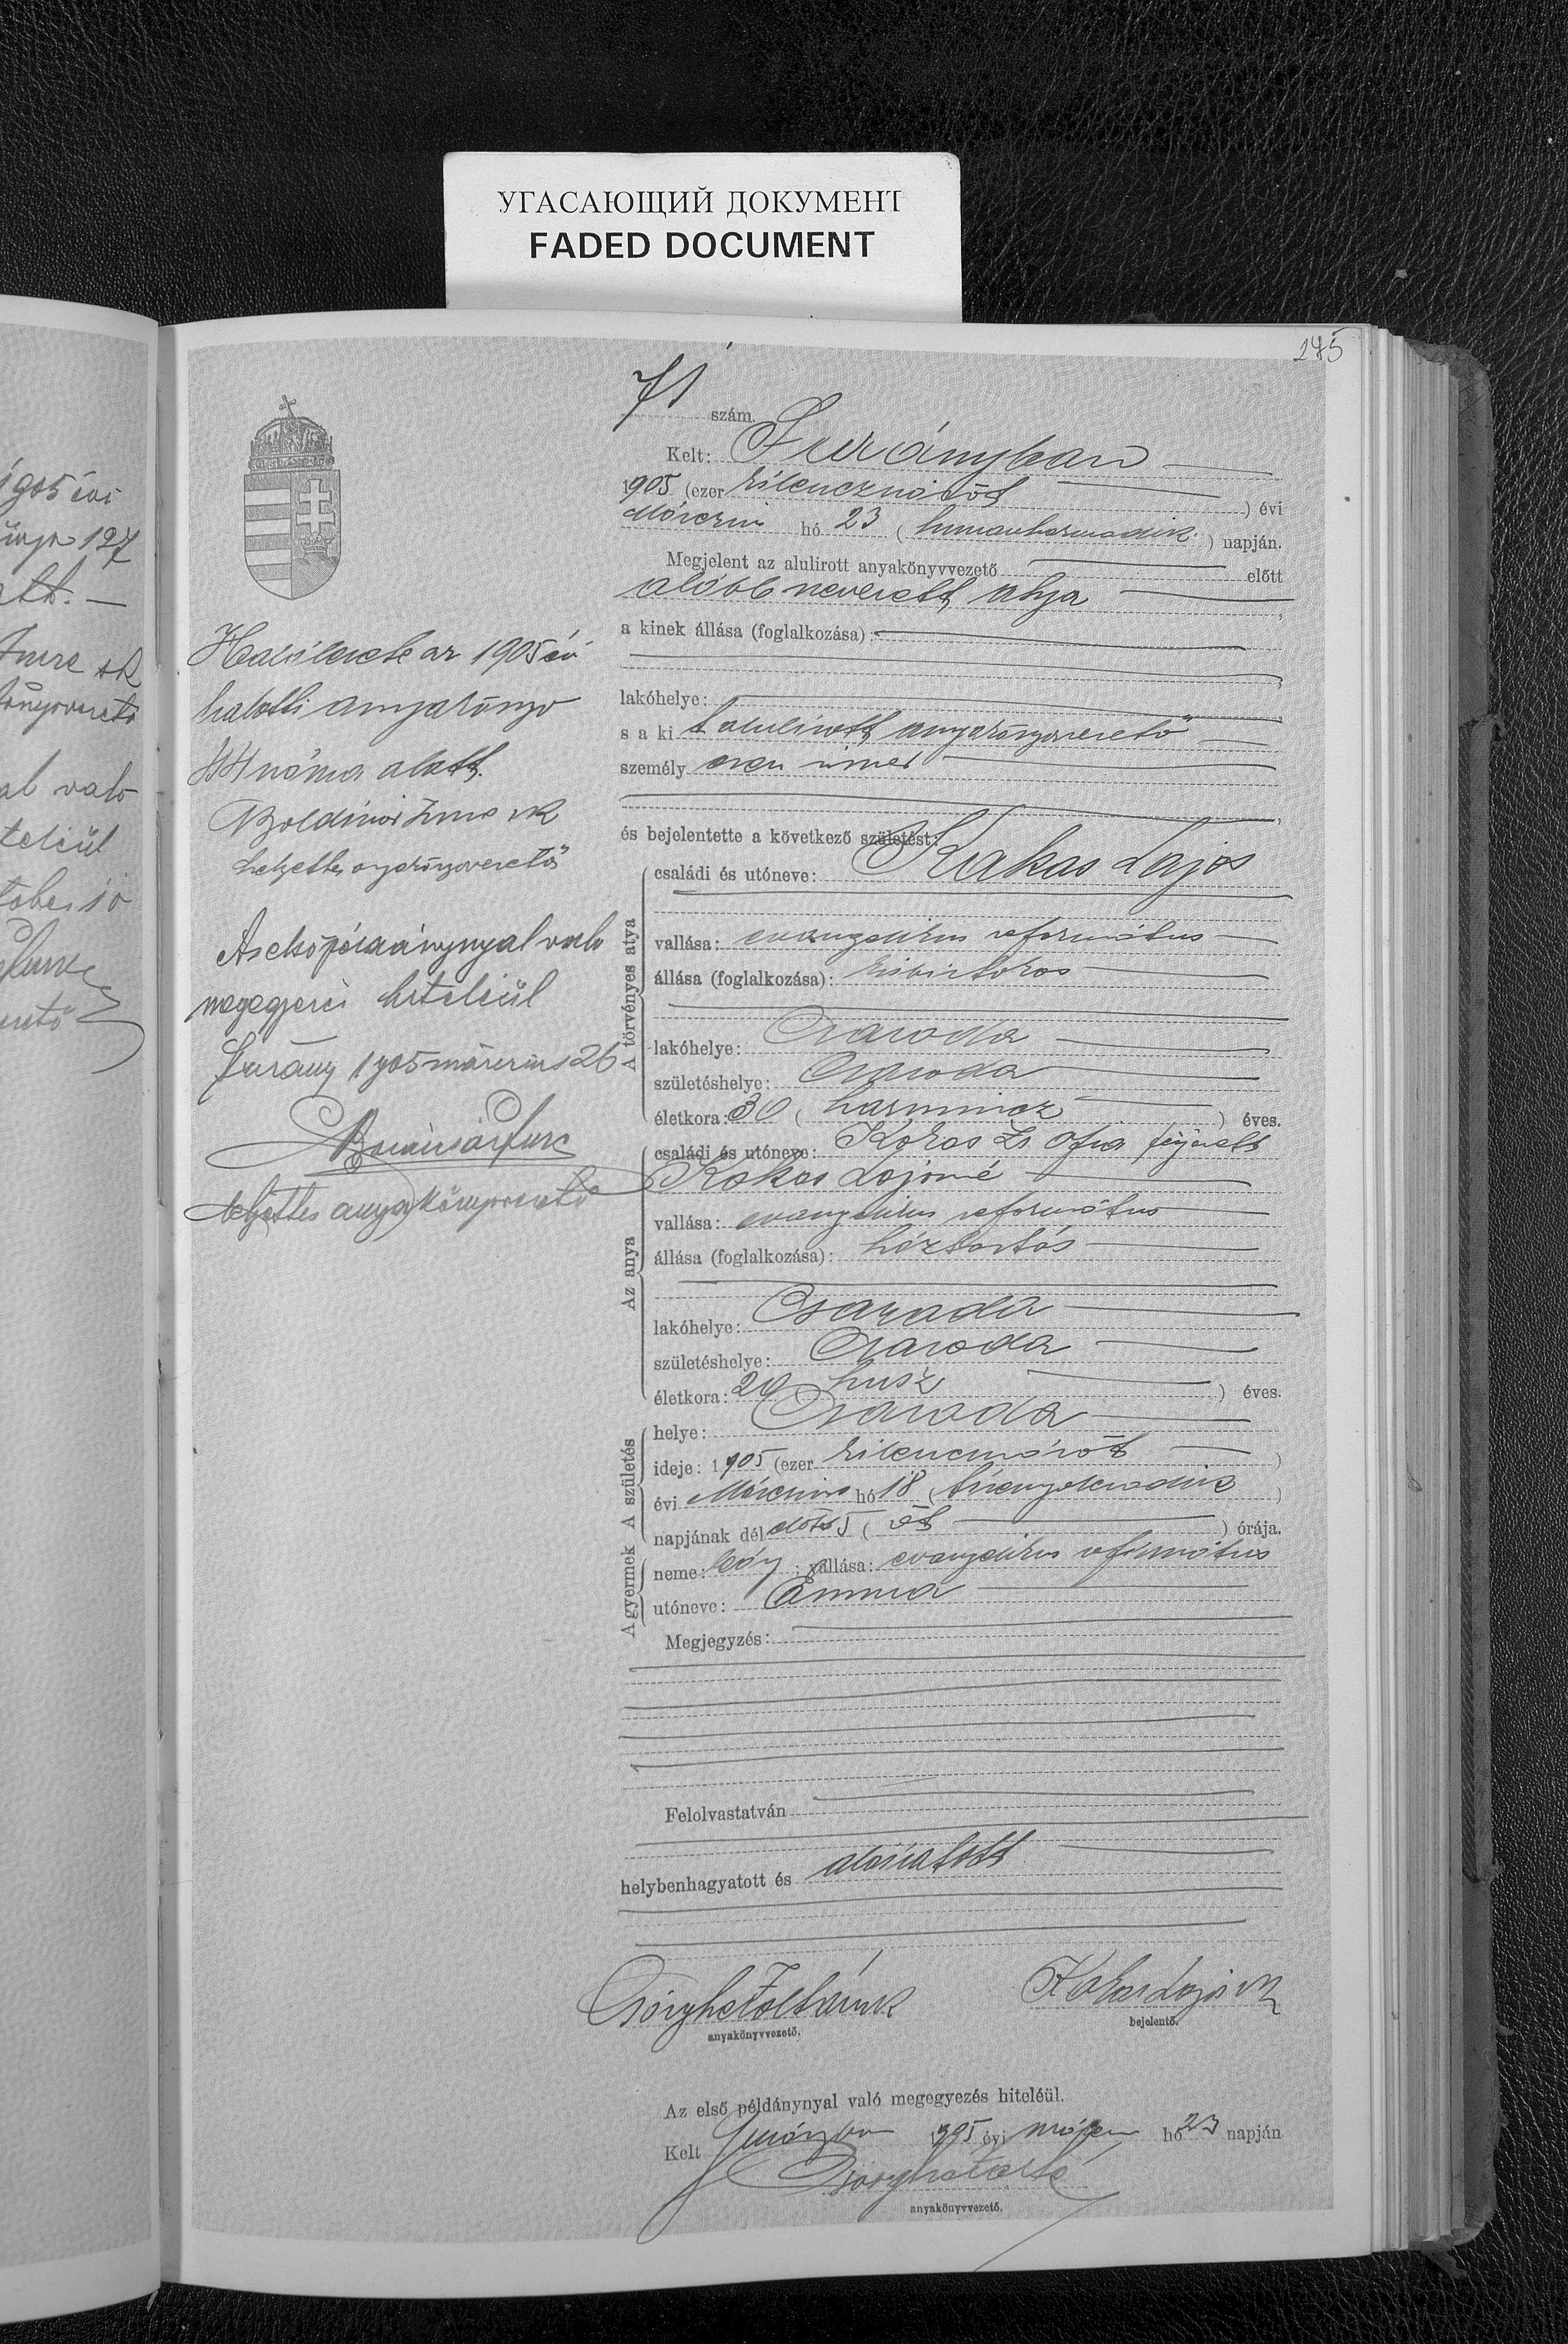 УГАСАЮЩИЙ ДОКУМЕНТ
FADED DOCUMENT
1905 évi
127
att. —
Imre sk
való
hiteléül
175
71 szám.
Kelt: Surányban
1905 (ezer kilenczszázöt ) évi
Márczius hó 23 ( huszonharmadik ) napján.
Megjelent az alulirott anyakönyvvezető előtt
alább nevezett atya
a kinek állása (foglalkozása):
lakóhelye:
s a ki t alulirott anyakönyvvezető
személyesen ismer
és bejelentette a következő születést:
A törvényes atya
családi és utóneve: Kakas Lajos
vallása: evangelikus református
állása (foglalkozása): kisbirtokos
lakóhelye: Csaroda
születéshelye: Csaroda
életkora: 30 ( harmincz ) éves.
Az anya
családi és utóneve: Zsofia férjezett
Kakas Lajosné
vallása: evangelikus református
állása (foglalkozása): háztartás
lakóhelye: Csaroda
születéshelye: Csaroda
életkora: 20 husz ) éves.
A születés
helye: Csaroda
ideje: 1905 (ezer kilenczszázöt )
évi Márczius hó 18 ( tizennyolczadik )
napjának délelőtt 5 ( öt ) órája.
A gyermek
neme: leány; vallása: evangelikus református
utóneve: Emma
Megjegyzés:
Felolvastatván
helybenhagyatott és aláiratott
Zoltán sk
anyakönyvvezető.
Kakas Lajos sk
bejelentő.
Az első példánynyal való megegyezés hiteléül.
Kelt Surányban 1905 évi márcz hó 23 napján
anyakönyvvezető.
Halálesete az 1905 évi
halotti anyakönyv
szám alatt.
Imre sk
helyettes anyakönyvvezető
Az első példánynyal való
megegyezés hiteléül
Surány 1905 márczius 26
helyettes anyakönyvvezető